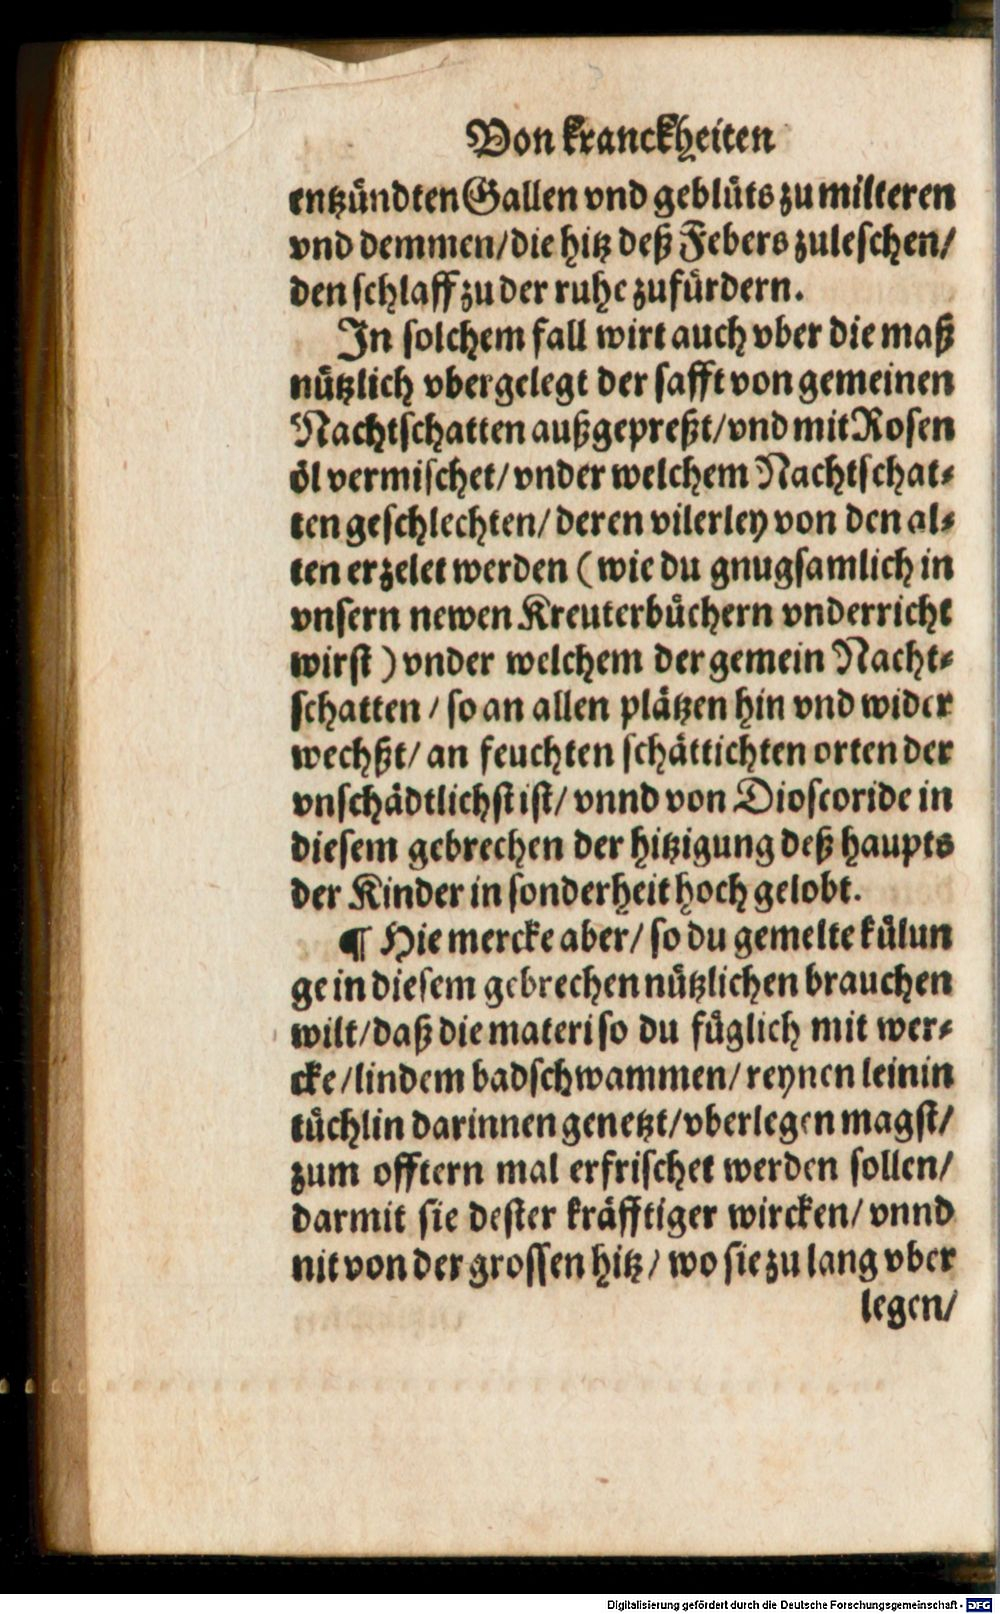 Von kranckheiten
entzündten Gallen vnd geblüts zu milteren
vnd demmen/die hitz deß Febers zuleschen/
den schlaff zu der ruhe zufürdern.
In solchem fall wirt auch vber die maß
nützlich vbergelegt der safft von gemeinen
Nachtschatten außgepreßt/vnd mit Rosen
öl vermischet/vnder welchem Nachtschat⸗
ten geschlechten/deren vilerley von den al⸗
ten erzelet werden (wie du gnugsamlich in
vnsern newen Kreuterbüchern vnderricht
wirst) vnder welchem der gemein Nacht⸗
schatten/so an allen plätzen hin vnd wider
wechßt/an feuchten schättichten orten der
vnschädtlichst ist/vnnd von Dioscoride in
diesem gebrechen der hitzigung deß haupts
der Kinder in sonderheit hoch gelobt.
¶ Hie mercke aber/so du gemelte külun
ge in diesem gebrechen nützlichen brauchen
wilt/daß die materi so du füglich mit wer⸗
cke/lindem badschwammen/reynen leinin
tüchlin darinnen genetzt/vberlegen magst/
zum offtern mal erfrischet werden sollen/
darmit sie dester kräfftiger wircken/vnnd
nit von der grossen hitz/wo sie zu lang vber
legen/
Digitalisierung gefördert durch die Deutsche Forschungsgemeinschaft - DFG